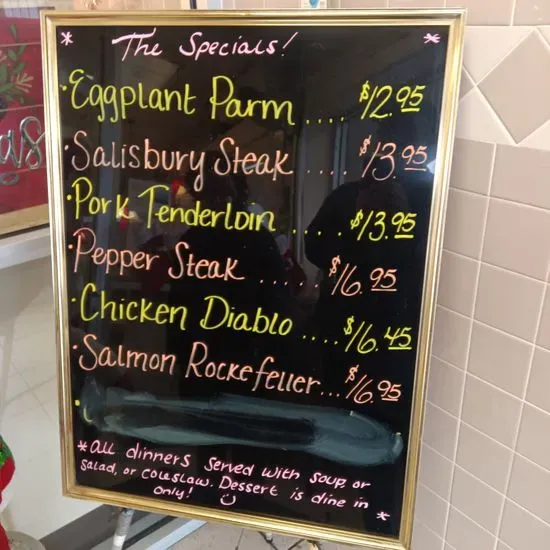 * The Specials! *
·Eggplant Parm .... $12.95
·Salisbury Steak .... $13.95
·Pork Tenderloin .... $13.95
·Pepper Steak ..... $16.95
·Chicken Diablo .... $16.45
·Salmon Rockefeller... $16.95
*All dinners served with soup, or
salad, or coleslaw. Dessert is dine in
only! *